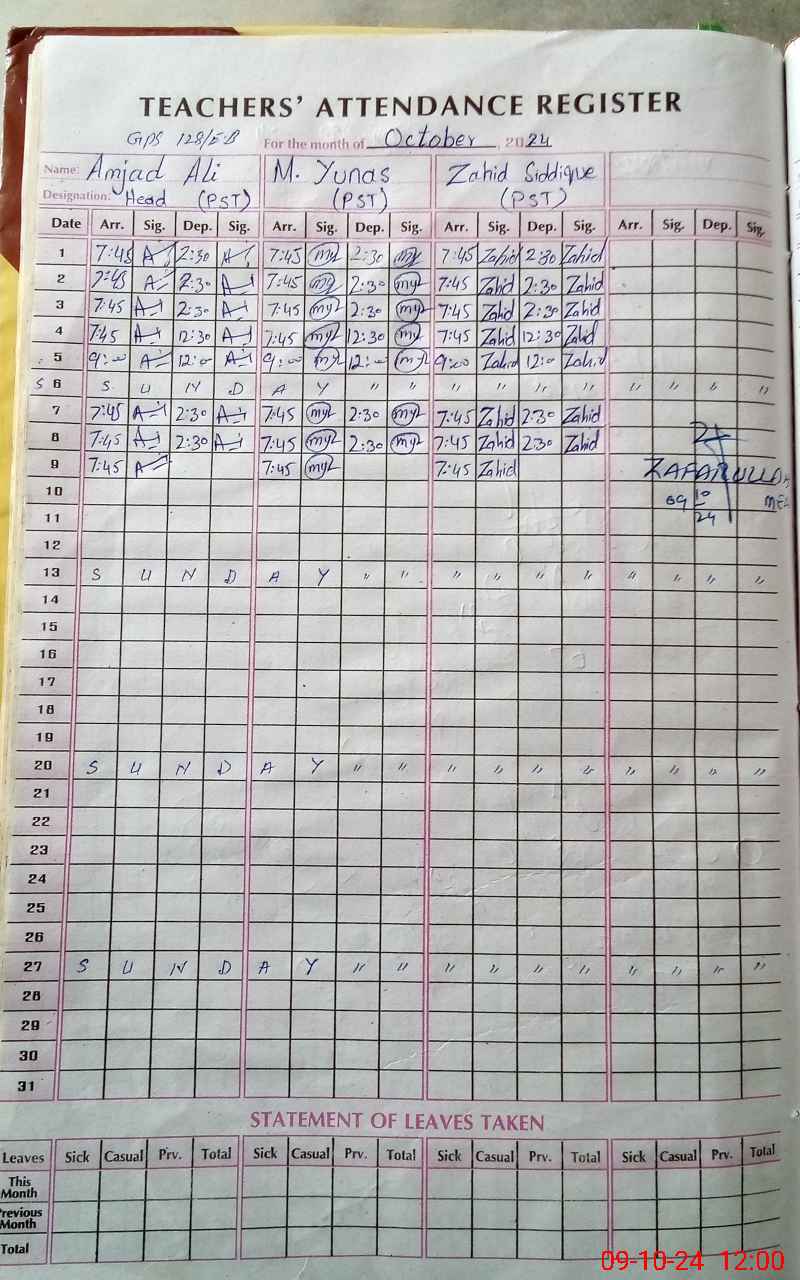 TEACHERS' ATTENDANCE REGISTER
GPS 128/5-B For the month of October, 2024
Name: Amjad Ali M. Yunas Zahid Siddique
Designation: Head (PST) (PST) (PST)
Date Arr. Sig. Dep. Sig. Arr. Sig. Dep. Sig. Arr. Sig. Dep. Sig. Arr. Sig. Dep. Sig.
1 7:45 2:30 7:45 2:30 7:45 Zahid 2:30 Zahid
2 7:45 2:30 7:45 2:30 7:45 Zahid 2:30 Zahid
3 7:45 2:30 7:45 2:30 7:45 Zahid 2:30 Zahid
4 7:45 12:30 7:45 12:30 7:45 Zahid 12:30 Zahid
5 9:00 12:00 9:00 12:00 9:00 Zahid 12:00 Zahid
S 6 S U N D A Y " " " " " " " " " "
7 7:45 2:30 7:45 2:30 7:45 Zahid 2:30 Zahid
8 7:45 2:30 7:45 2:30 7:45 Zahid 2:30 Zahid
9 7:45 7:45 7:45 Zahid ZAFARULLAH
10 09 10
11 24
12
13 S U N D A Y " " " " " " " " " "
14
15
16
17
18
19
20 S U N D A Y " " " " " " " " " "
21
22
23
24
25
26
27 S U N D A Y " " " " " " " " " "
28
29
30
31
STATEMENT OF LEAVES TAKEN
Leaves Sick Casual Prv. Total Sick Casual Prv. Total Sick Casual Prv. Total Sick Casual Prv. Total
This
Month
Previous
Month
Total
09-10-24 12:00